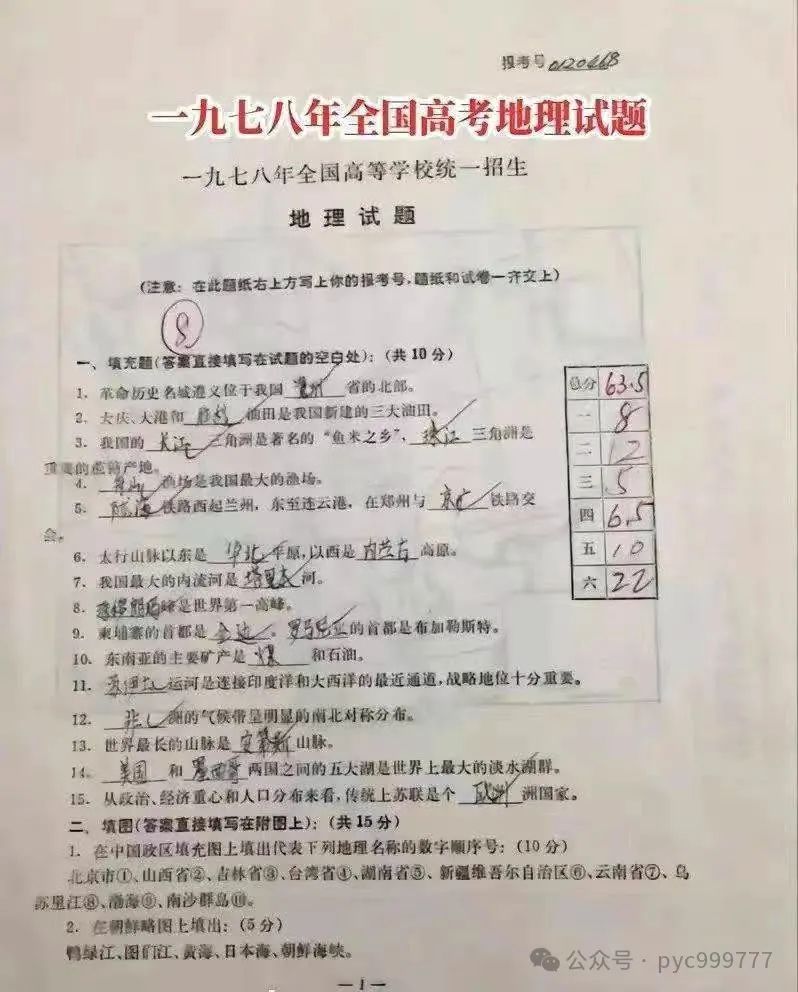 报考号 0120468
一九七八年全国高考地理试题
一九七八年全国高等学校统一招生
地理试题
(注意：在此题纸右上方写上你的报考号,题纸和试卷一齐交上)
8
一、填充题(答案直接填写在试题的空白处)：(共10分)
1. 革命历史名城遵义位于我国 贵州 省的北部。
2. 大庆、大港和 胜利 油田是我国新建的三大油田。
3. 我国的 长江 三角洲是著名的“鱼米之乡”, 珠江 三角洲是
重要的蚕丝产地。
4. 舟山 渔场是我国最大的渔场。
5. 陇海 铁路西起兰州，东至连云港，在郑州与 京广 铁路交
会。
6. 太行山脉以东是 华北 平原,以西是 内蒙古 高原。
7. 我国最大的内流河是 塔里木 河。
8. 峰是世界第一高峰。
9. 柬埔寨的首都是 金边 。 罗马尼亚 的首都是布加勒斯特。
10. 东南亚的主要矿产是 煤 和石油。
11. 运河是连接印度洋和大西洋的最近通道,战略地位十分重要。
12. 非 洲的气候带呈明显的南北对称分布。
13. 世界最长的山脉是 安第斯 山脉。
14. 美国 和 墨西哥 两国之间的五大湖是世界上最大的淡水湖群。
15. 从政治、经济重心和人口分布来看,传统上苏联是个 欧洲 洲国家。
总分 63.5
一 8
二 12
三 5
四 6.5
五 10
六 22
二、填图(答案直接填写在附图上)：(共15分)
1. 在中国政区填充图上填出代表下列地理名称的数字顺序号：(10分)
北京市①、山西省②、吉林省③、台湾省④、湖南省⑤、新疆维吾尔自治区⑥、云南省⑦、乌
苏里江⑧、渤海⑨、南沙群岛⑩。
2. 在朝鲜略图上填出：(5分)
鸭绿江、图们江、黄海、日本海、朝鲜海峡。
— 1 —
公众号 · pyc999777